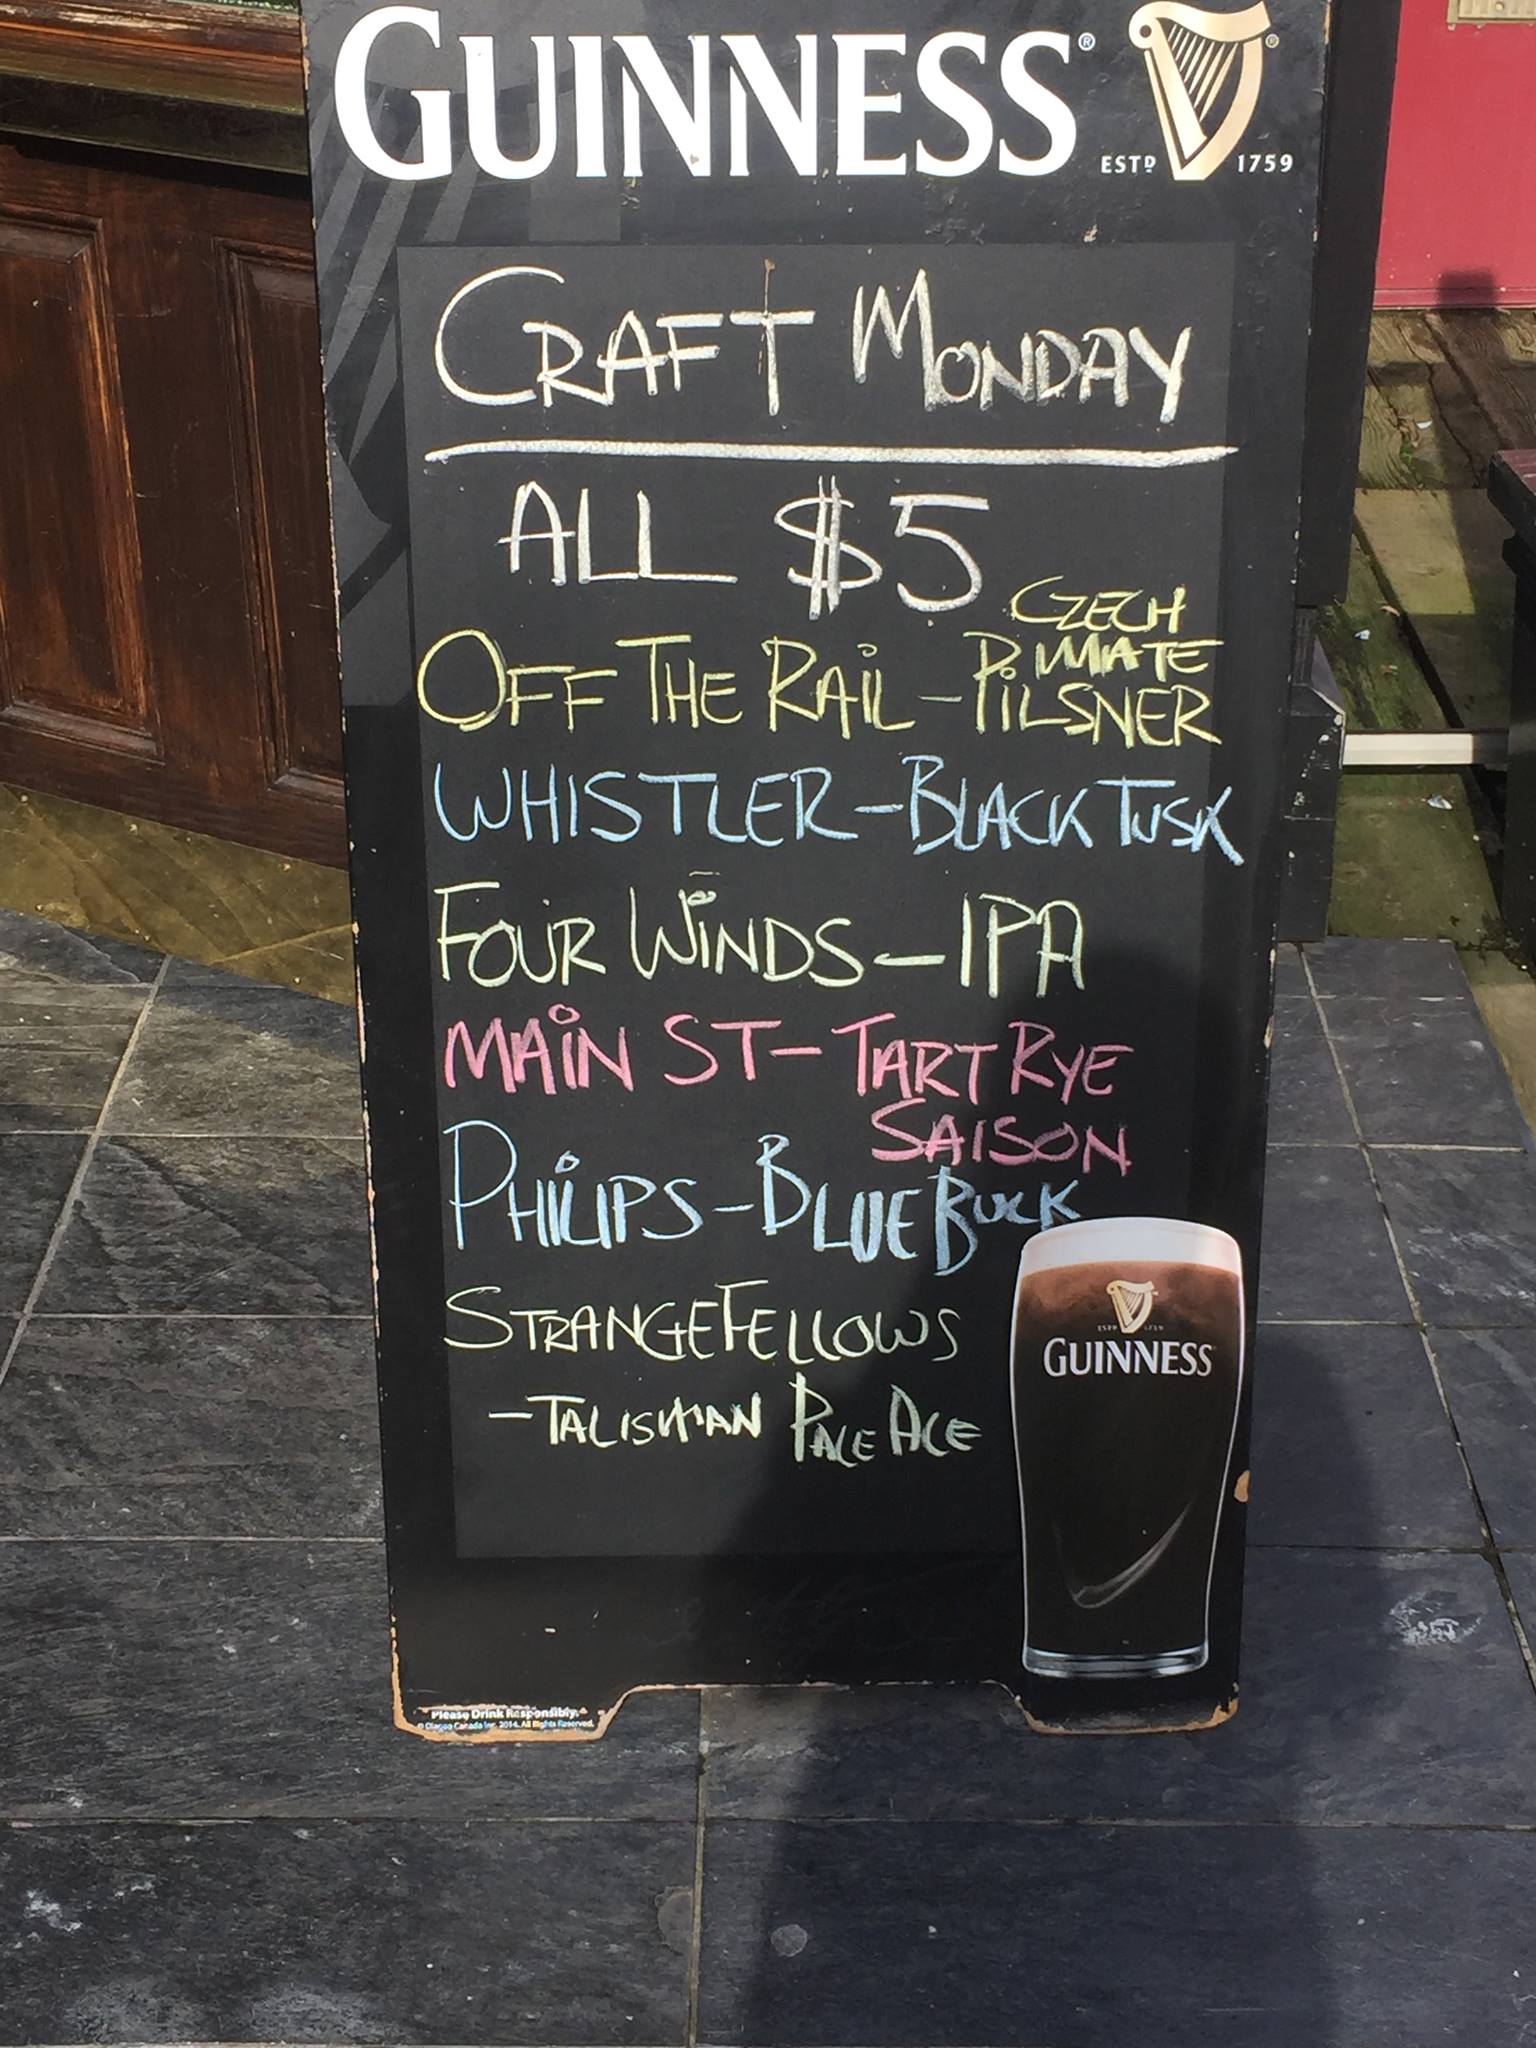 GUINNESS®
ESTD 1759
CRAFT MONDAY
ALL $5
CZECH
MATE
OFF THE RAIL - PILSNER
WHISTLER - BLACK TUSK
FOUR WINDS - IPA
MAIN ST - TART RYE
SAISON
PHILIPS - BLUE BUCK
STRANGEFELLOWS
- TALISMAN PALE ALE
ESTD 1759
GUINNESS
Please Drink Responsibly.
© Diageo Canada Inc. 2014. All Rights Reserved.